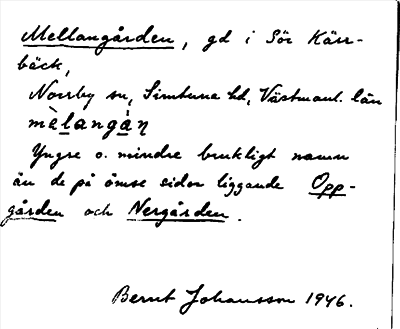 Mellangården, gd i Sör Kärr-
bäck,
Norrby sn, Simtuna hd, Västmanl. län
mèlangàn̥
Yngre o. mindre brukligt namn
än de på ömse sidor liggande Opp-
gården och Nergården.
Bernt Johansson 1946.